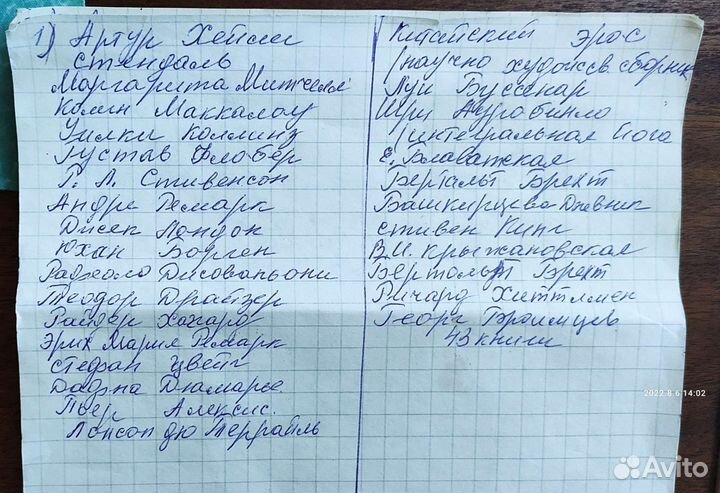 1) Артур Хейли
Стендаль
Маргарита Митчелл
Колин Маккалоу
Уилки Коллинз
Густав Флобер
Р. Л. Стивенсон
Андре Ремарк
Джек Лондон
Юхан Борген
Раджоло Джованьони
Теодор Драйзер
Райдер Хаггард
Эрих Мария Ремарк
Стефан Цвейг
Дафна Дюморье.
Пьер Алексис.
Понсон дю Террайль
Китайский эрос
(научно худойсв. сборник
Луи Буссенар
Шри Ауробинло
(интегральная йога
Е. Блаватская
Бертальт Брехт
Башкирцева Дневник
Стивен Кинг
В.И. Крыжановская
Бертольт Брехт
Ричард Хиттлмен
Георг
43 книги
2022.8.6 14:02
Avito